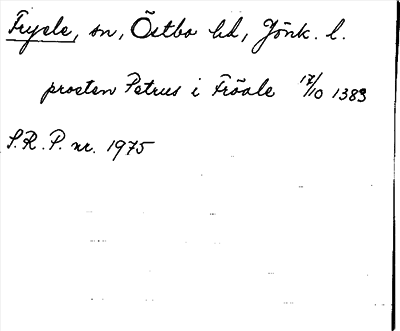 Fryele, sn, Östbo hd, Jönk. l.
prosten Petrus i Fröale 17/10 1383
S.R.P. nr. 1975